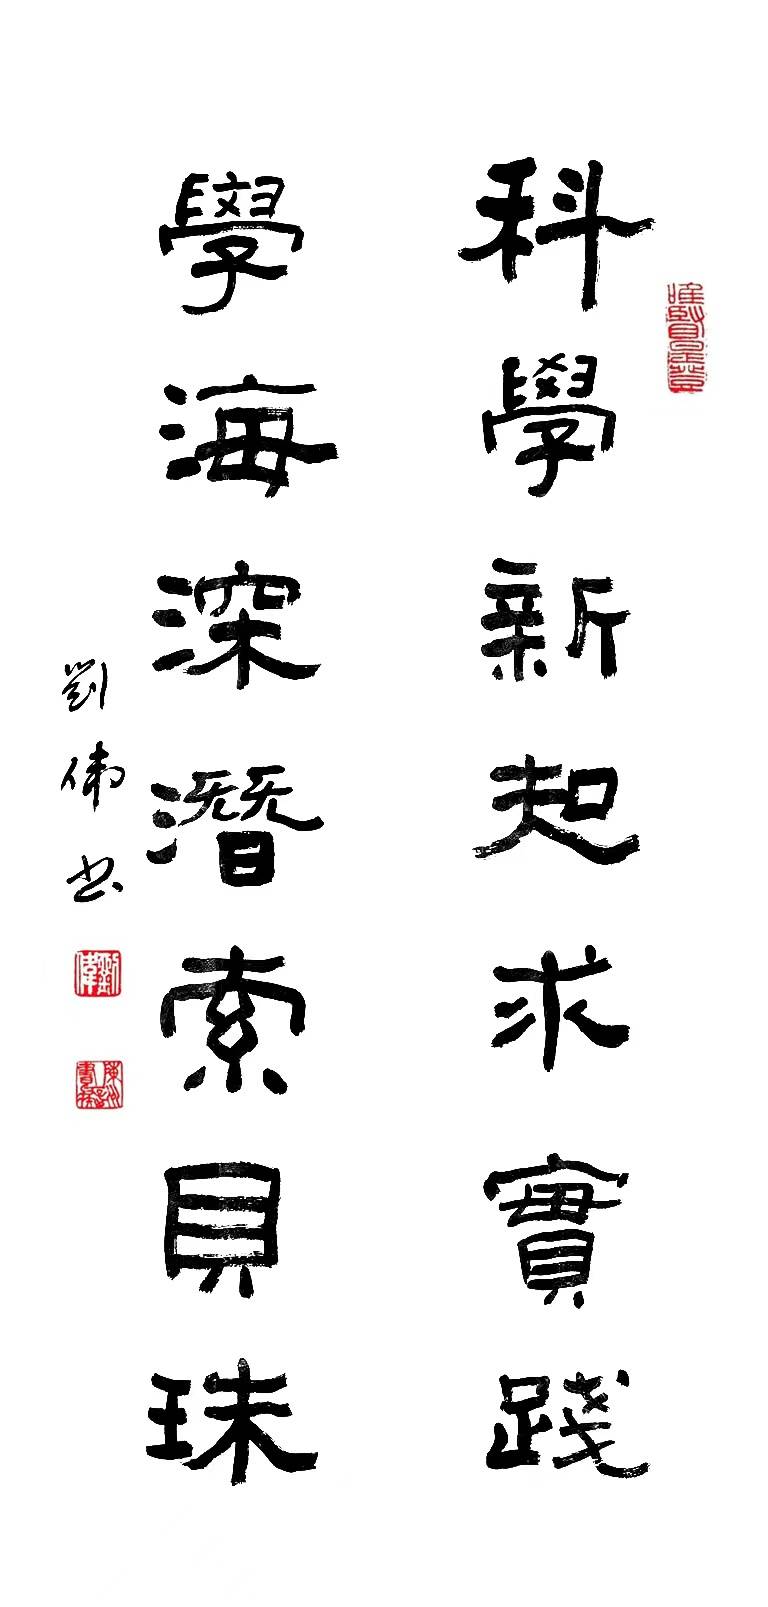 科學新知求實踐
學海深潛索貝珠
劉偉書
劉偉